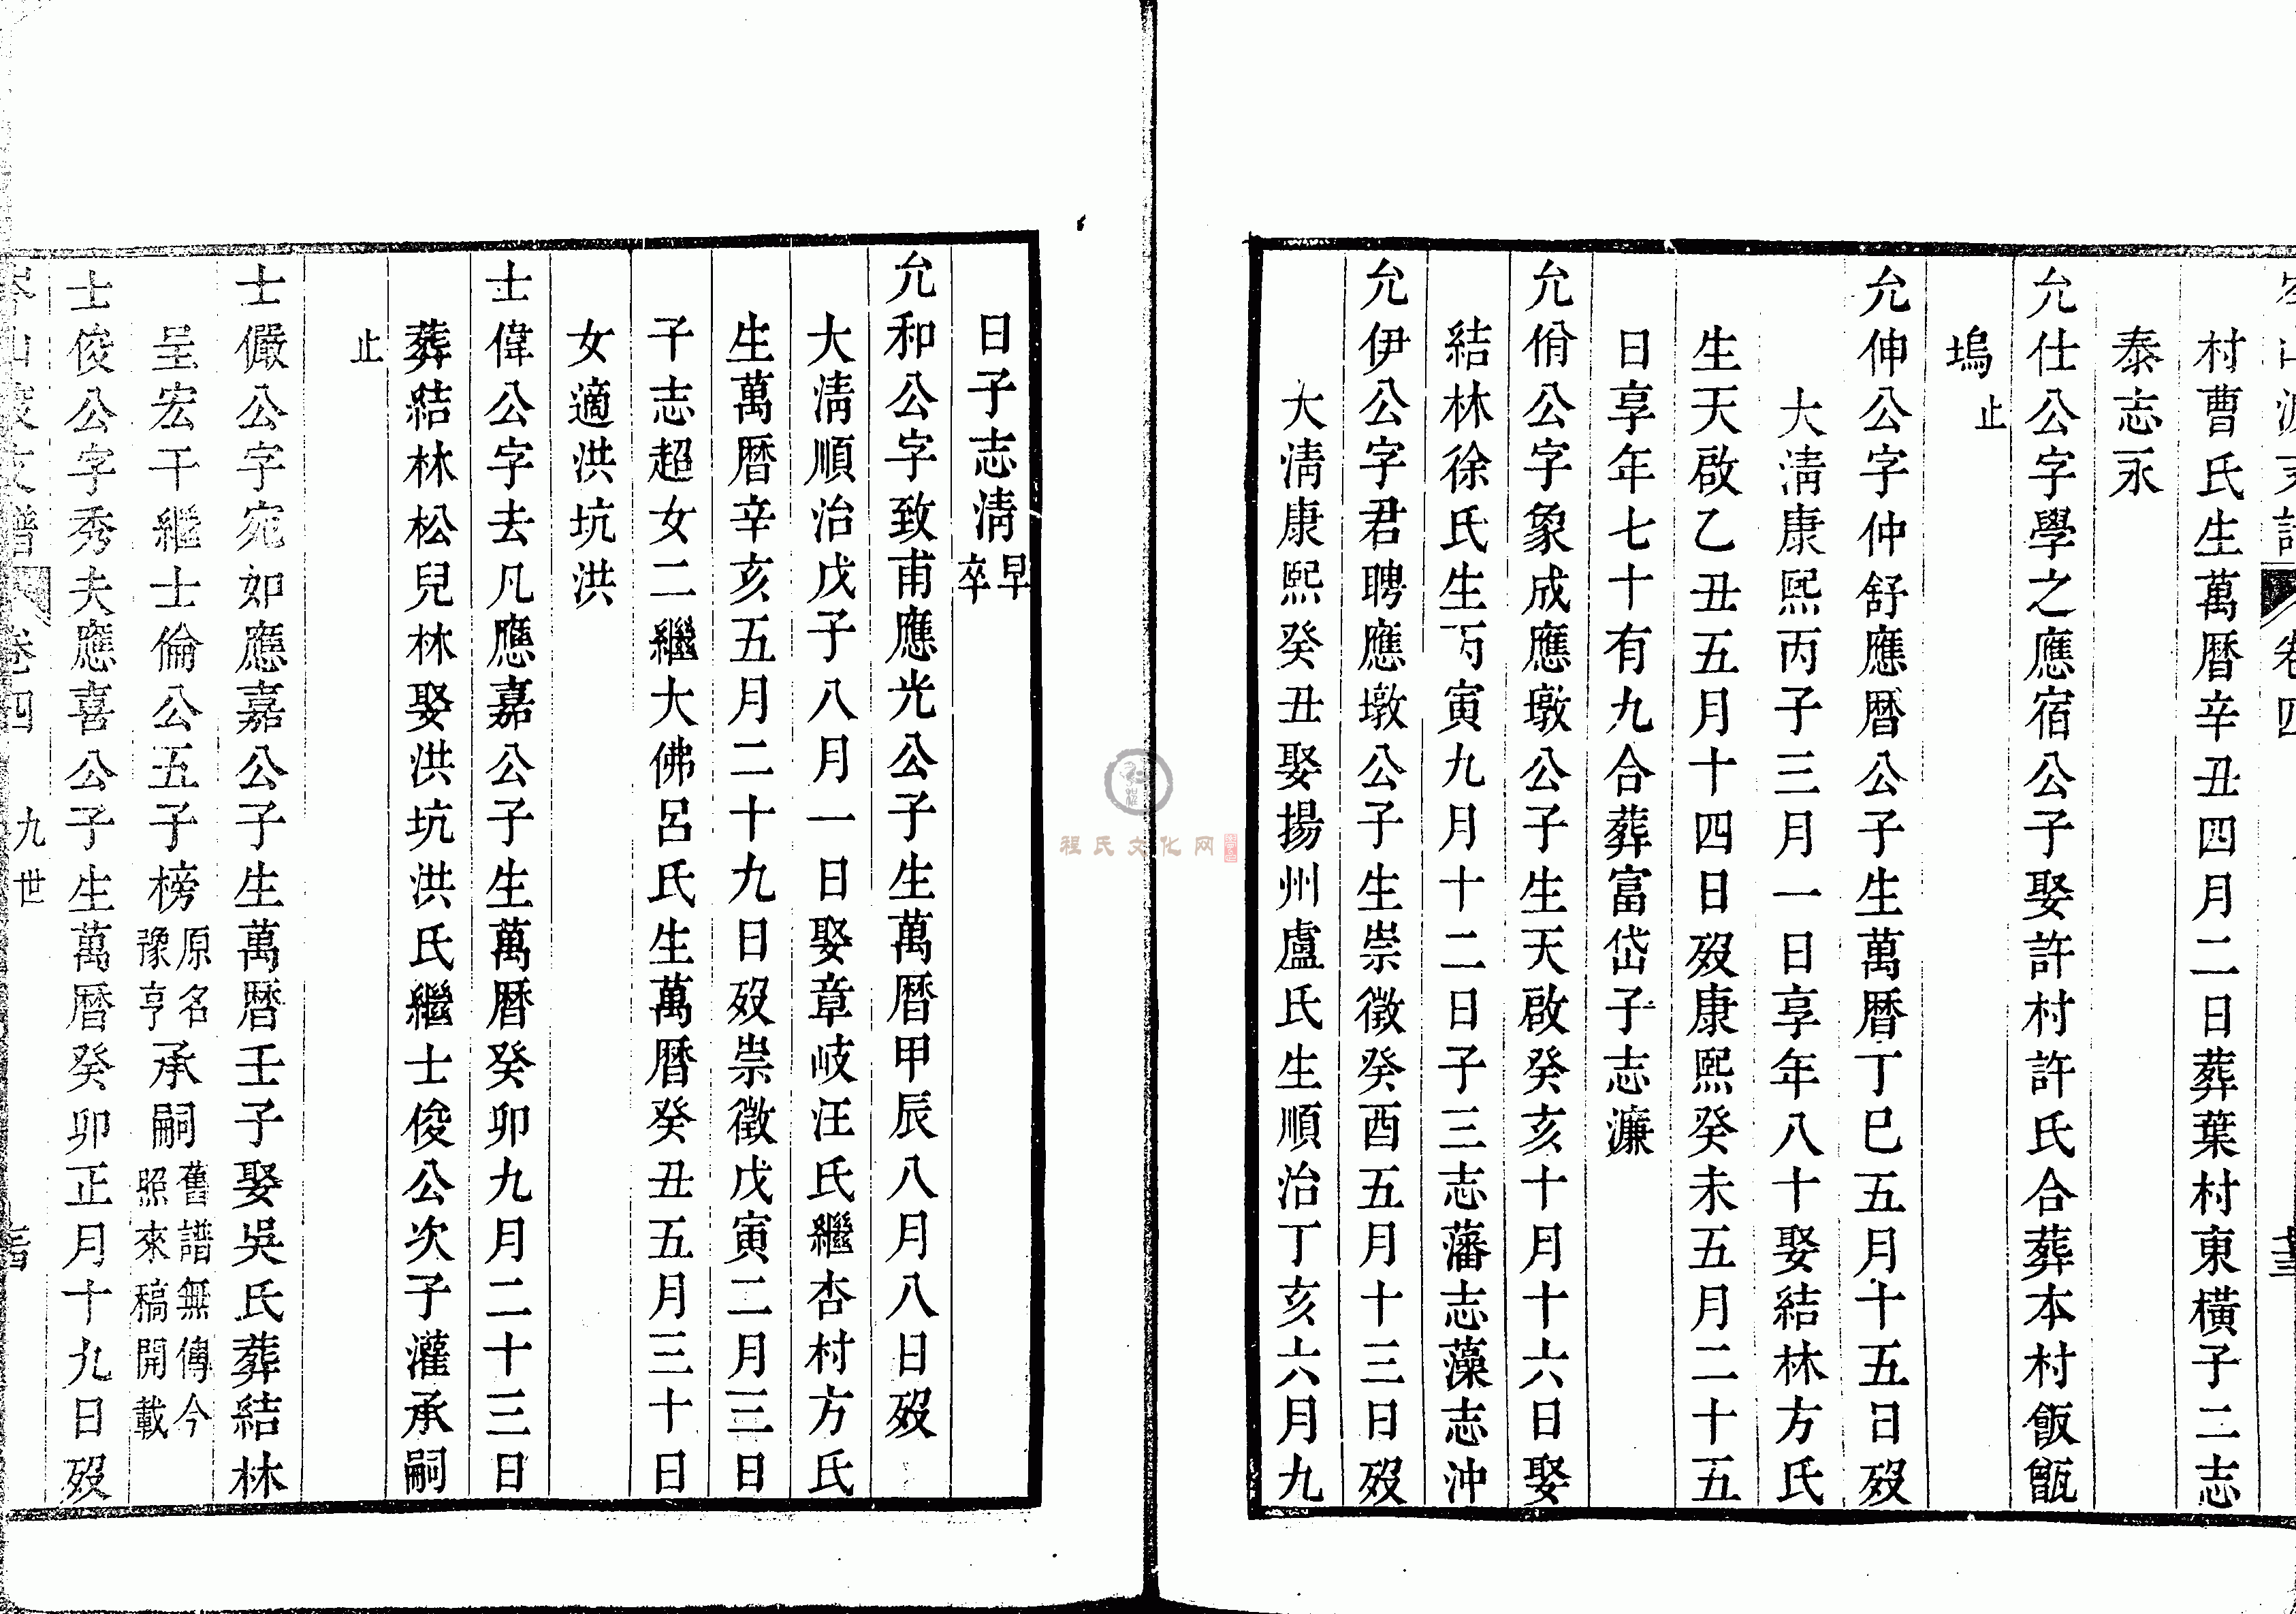 村曹氏生萬曆辛丑四月二日葬葉村東橫子二志
泰志永
允仕公字學之應宿公子娶許村許氏合葬本村飯甑
塢止
允伸公字仲舒應曆公子生萬曆丁巳五月十五日歿
大淸康熙丙子三月一日享年八十娶結林方氏
生天啟乙丑五月十四日歿康熙癸未五月二十五
日享年七十有九合葬富岱子志濂
允佾公字象成應墩公子生天啟癸亥十月十六日娶
結林徐氏生丙寅九月十二日子三志藩志藻志沖
允伊公字君聘應墩公子生崇徵癸酉五月十三日歿
大淸康熙癸丑娶揚州盧氏生順治丁亥六月九
日子志淸早卒
允和公字致甫應光公子生萬曆甲辰八月八日歿
大淸順治戊子八月一日娶章岐汪氏繼杏村方氏
生萬曆辛亥五月二十九日歿崇徵戊寅二月三日
子志超女二繼大佛呂氏生萬曆癸丑五月三十日
女適洪坑洪
士偉公字去凡應嘉公子生萬曆癸卯九月二十三日
葬結林松兒林娶洪坑洪氏繼士俊公次子灌承嗣
止
士儼公字宛如應嘉公子生萬曆壬子娶吳氏葬結林
呈宏干繼士倫公五子榜原名豫亨承嗣舊譜無傳今照來稿開載
士俊公字秀夫應喜公子生萬曆癸卯正月十九日歿
卷四 九世
程氏文化网